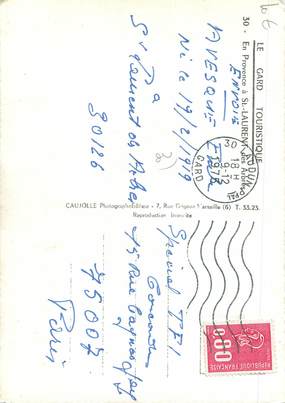 LE GARD TOURISTIQUE
30 - En Provence à St-LAURENT des Arbres
ENVOIE
AVESQUE
Né le 19/2/1919
à
St Laurent des Arbres
30126
30
18 H
9-12
1977
GARD
CAUJOLLE Photographe-Editeur - 7, Rue Grignan Marseille (6) T. 33.23.
Reproduction Interdite
Spécial TF1
Concours
15 Rue Cognacq Jay
75007
Paris
0,80
REPUBLIQUE FRANCAISE